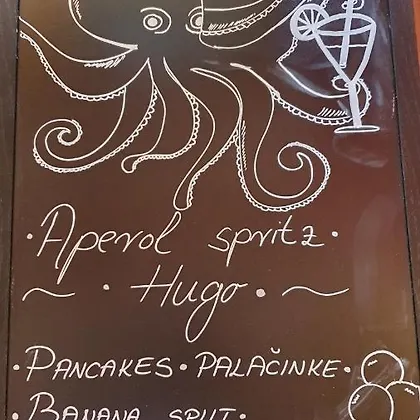 · Aperol spritz ·
~ · Hugo · ~
· PANCAKES · PALAČINKE ·
· BANANA SPLIT ·